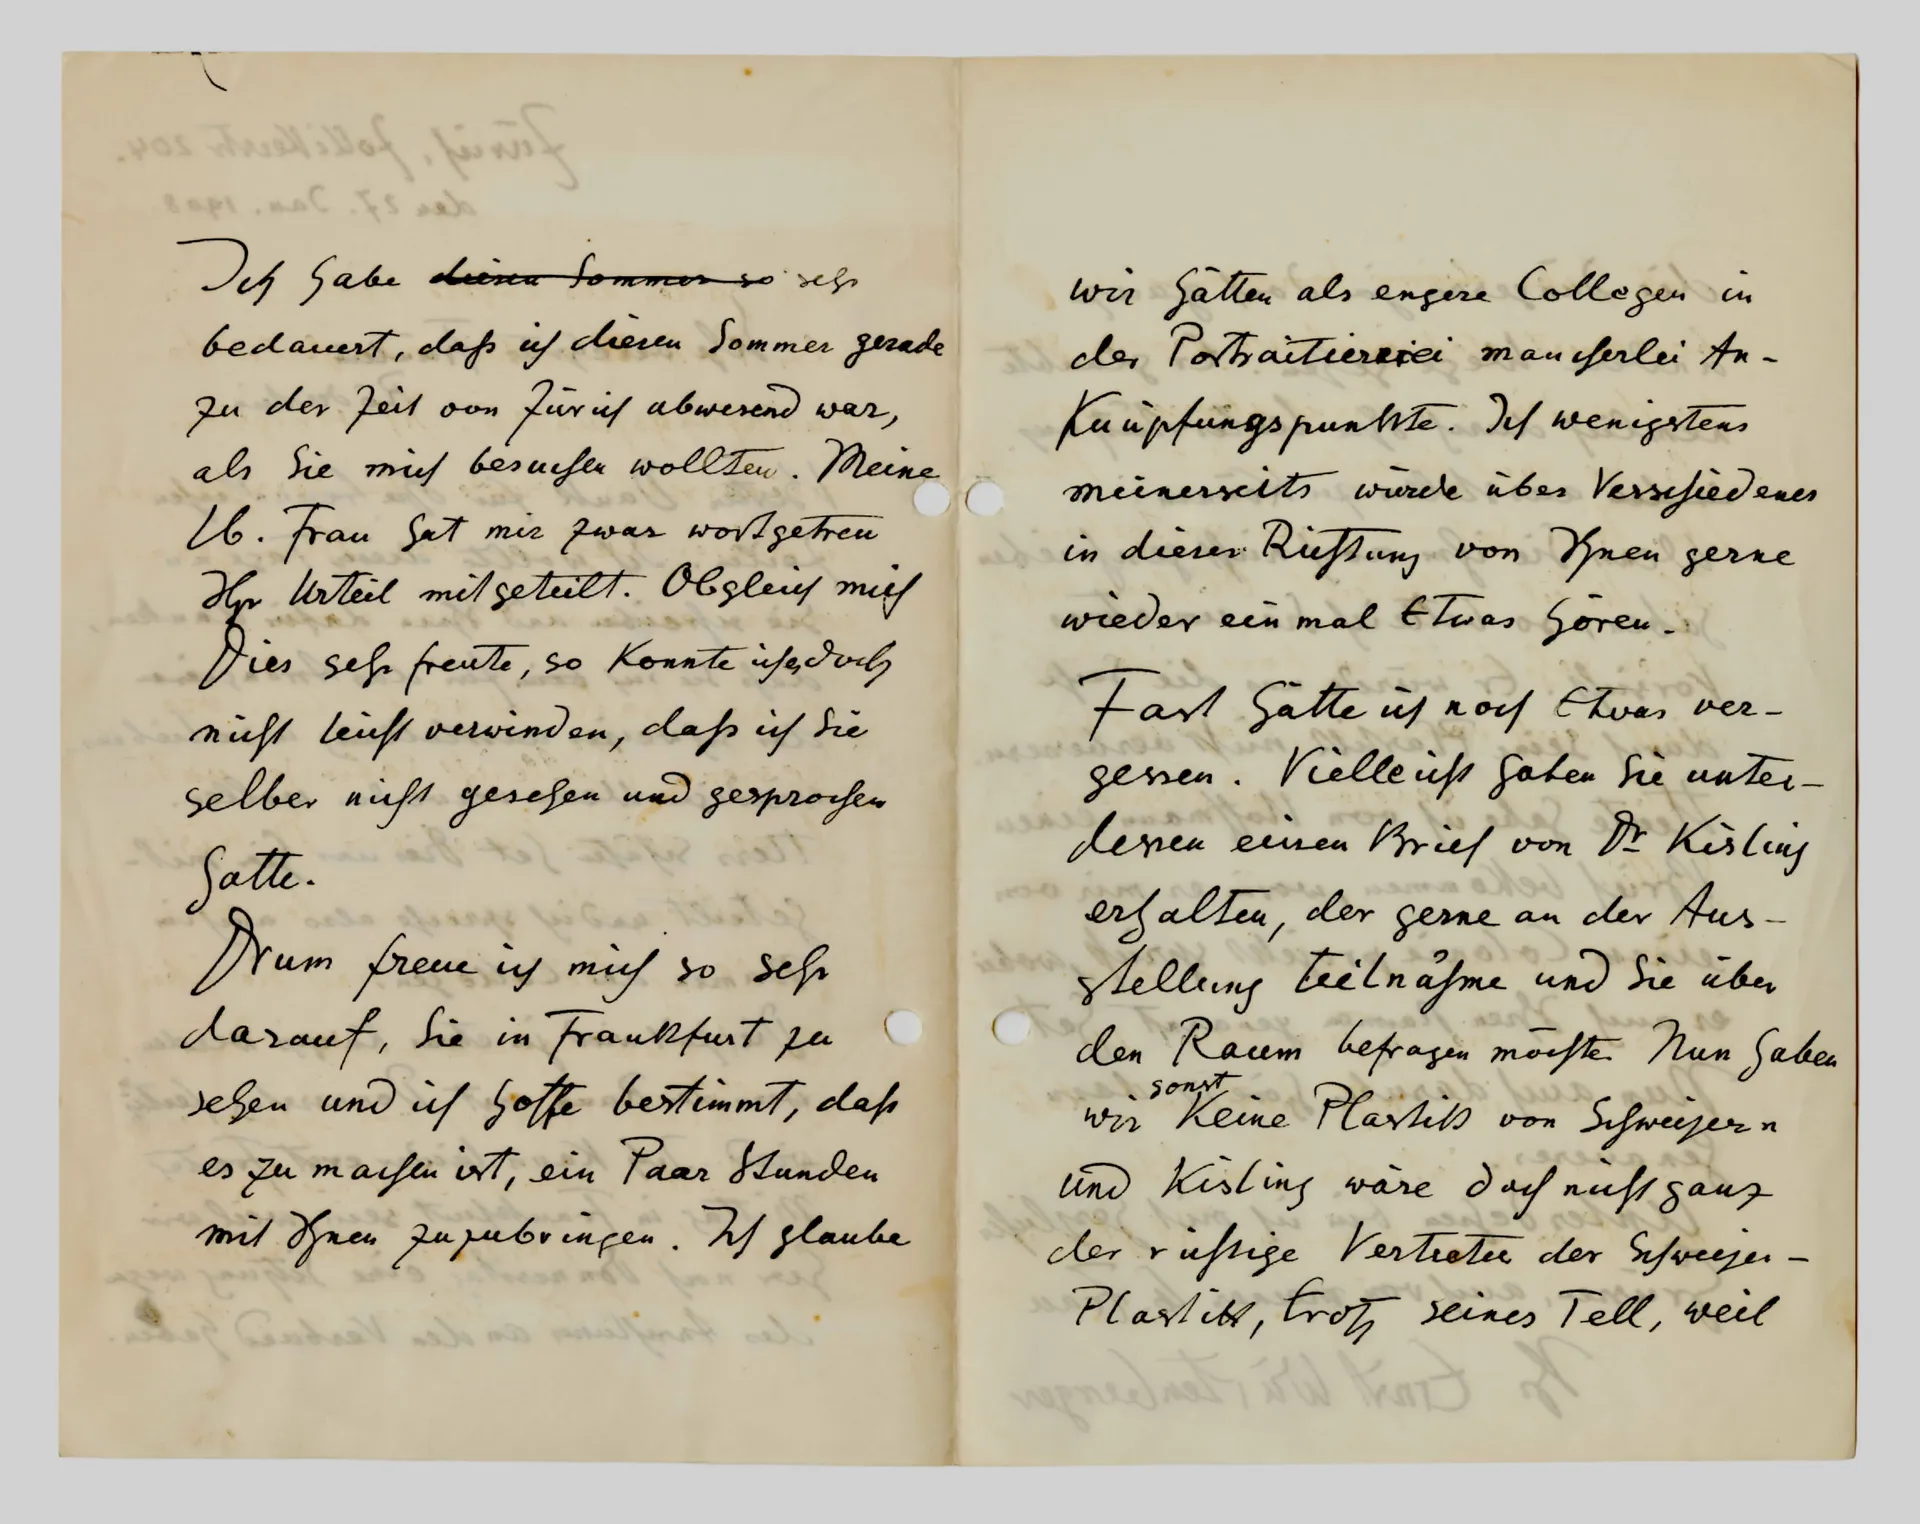 Ich habe diesen Sommer so sehr
bedauert, daß ich diesen Sommer gerade
zu der Zeit von Zürich abwesend war,
als Sie mich besuchen wollten. Meine
lb. Frau hat mir zwar wortgetreu
Ihr Urteil mitgeteilt. Obgleich mich
Dies sehr freute, so konnte ich jedoch
nicht leicht verwinden, daß ich Sie
selber nicht gesehen und gesprochen
hatte.
Drum freue ich mich so sehr
darauf, Sie in Frankfurt zu
sehen und ich hoffe bestimmt, daß
es zu machen ist, ein Paar Stunden
mit Ihnen zuzubringen. Ich glaube
wir hätten als engere Collegen in
der Portraitiererei mancherlei An-
knüpfungspunkte. Ich wenigstens
meinerseits würde über Verschiedenes
in dieser Richtung von Ihnen gerne
wieder einmal Etwas hören.
Fast hätte ich noch Etwas ver-
gessen. Vielleicht haben Sie unter-
dessen einen Brief von Dr Kisling
erhalten, der gerne an der Aus-
stellung teilnähme und Sie über
den Raum befragen möchte. Nun haben
wir sonst Keine Plastik von Schweizern
und Kisling wäre doch nicht ganz
der richtige Vertreter der Schweizer-
Plastik, trotz seines Tell, weil
Zürich, Zollikerstr 204.
den 27. Jan. 1908
Ihr Ernst Würtenberger